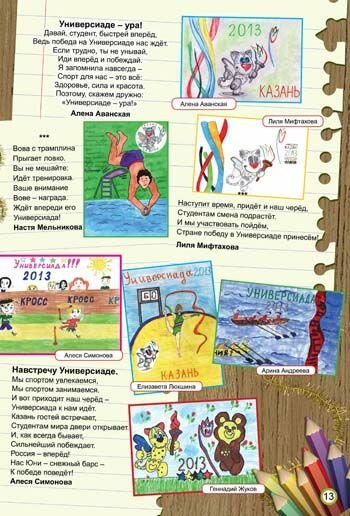 Универсиаде – ура!
Давай, студент, быстрей вперёд,
Ведь победа на Универсиаде нас ждёт.
Если трудно, ты не унывай,
Иди вперёд и побеждай.
Я запомнила навсегда –
Спорт для нас – это всё:
Здоровье, сила и красота.
Поэтому, скажем дружно:
«Универсиаде – ура!»
Алена Аванская
2013
КАЗАНЬ
Алена Аванская
Лиля Мифтахова
***
Вова с трамплина
Прыгает ловко.
Вы не мешайте:
Идёт тренировка.
Ваше внимание
Вове – награда.
Ждёт впереди его
Универсиада!
Настя Мельникова
***
Наступит время, придёт и наш черёд,
Студентам смена подрастёт.
И мы участвовать пойдём,
Стране победу в Универсиаде принесём!
Лиля Мифтахова
Универсиада!!!
2013
КРОСС
КРОСС
Алеся Симонова
Универсиада 2013
КАЗАНЬ
Елизавета Люкшина
УНИВЕРСИАДА
2013
Арина Андреева
Навстречу Универсиаде.
Мы спортом увлекаемся,
Мы спортом занимаемся.
И вот приходит наш черёд –
Универсиада к нам идёт.
Казань гостей встречает,
Студентам мира двери открывает.
И, как всегда бывает,
Сильнейший побеждает.
Россия – вперёд!
Нас Юни – снежный барс –
К победе поведёт!
Алеся Симонова
2013
Геннадий Жуков
13